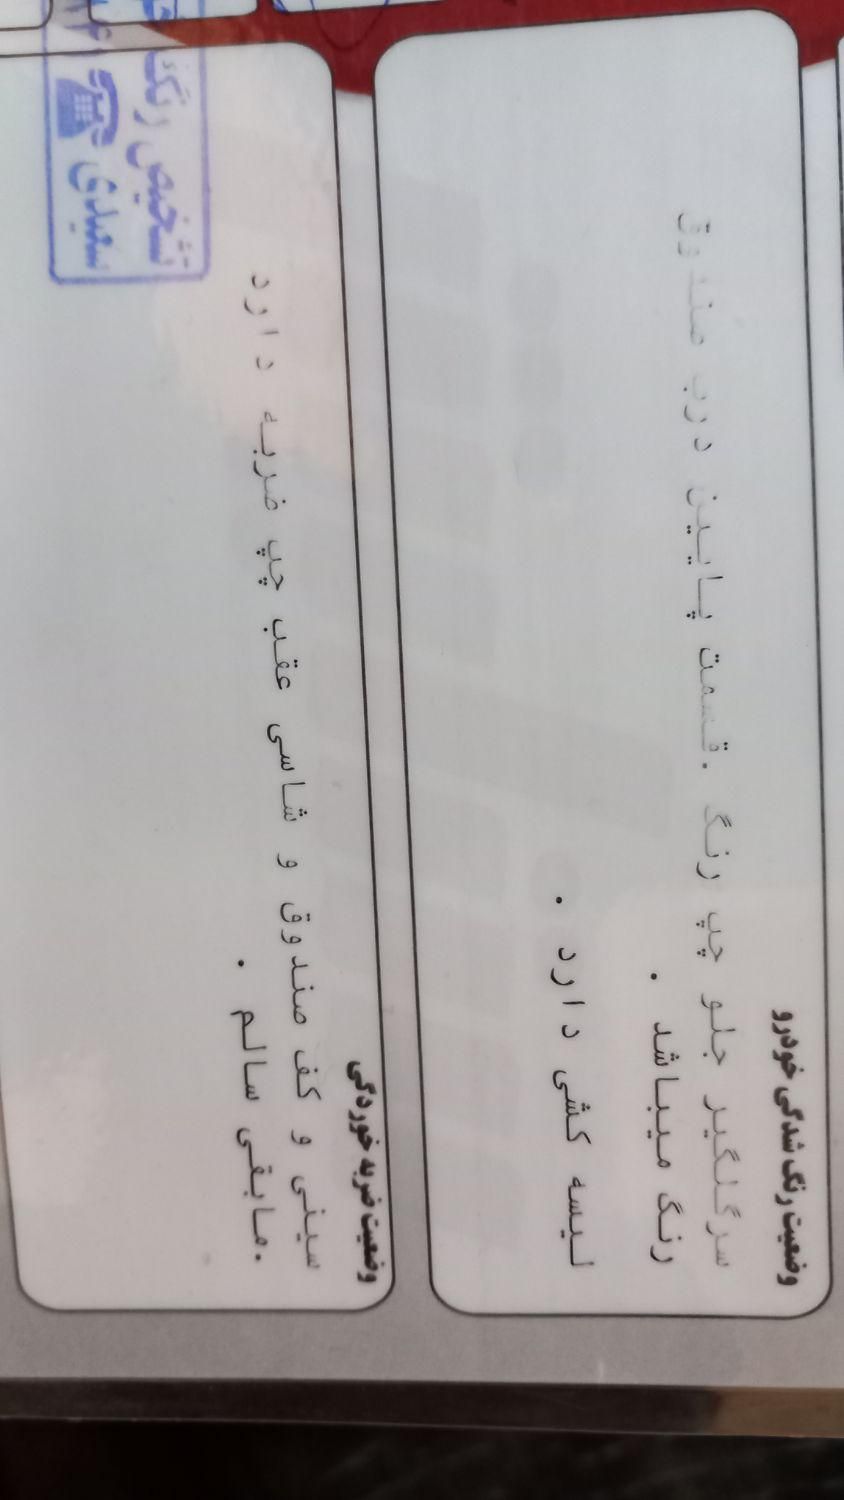 وضعیت رنگ شدگی خودرو
سرگلگیر جلو چپ رنگ .قسمت پایین درب صندوق
رنگ میباشد .
لیسه کشی دارد .
وضعیت ضربه خوردگی
سینی و کف صندوق و شاسی عقب چپ ضربه دارد
.مابقی سالم .
تشخیص رنگ
سعیدی